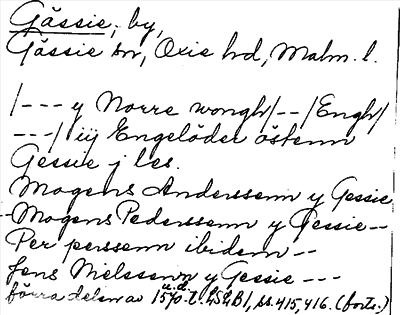 Gässie, by,
Gässie sn, Oxie hd, Malm. l.
/--- y Norre wongh/--/Engh/
---/ iij Engelöder östenn
Gessie j les.
Mogens Anderssenn y Gessie
-Mogens Pederssenn y Gessie--
Per perssenn ibidem--
Jens Nielssenn y Gessie ---
förra delen av 1570-t. u.d. LSLB1, ss. 415, 416. (forts.)